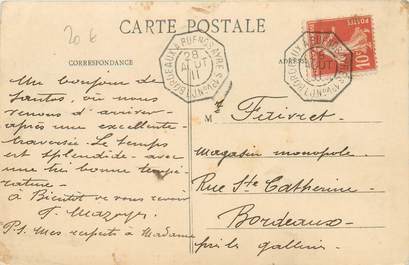 20 €
CARTE POSTALE
CORRESPONDANCE
ADRESSE
BORDEAUX A BUENOS-AYRES
28
AOUT
11
10
POSTES
Un bonjour de
Santos, où nous
venons d'arriver
après une excellente
traversée. Le temps
est splendide - avec
une très bonne tempé-
rature -
à Bientôt de vous revoir
F. Mazoyer
P.S. Mes respects à Madame
M Faivret
Magasin monopole
Rue Ste Catherine -
Bordeaux